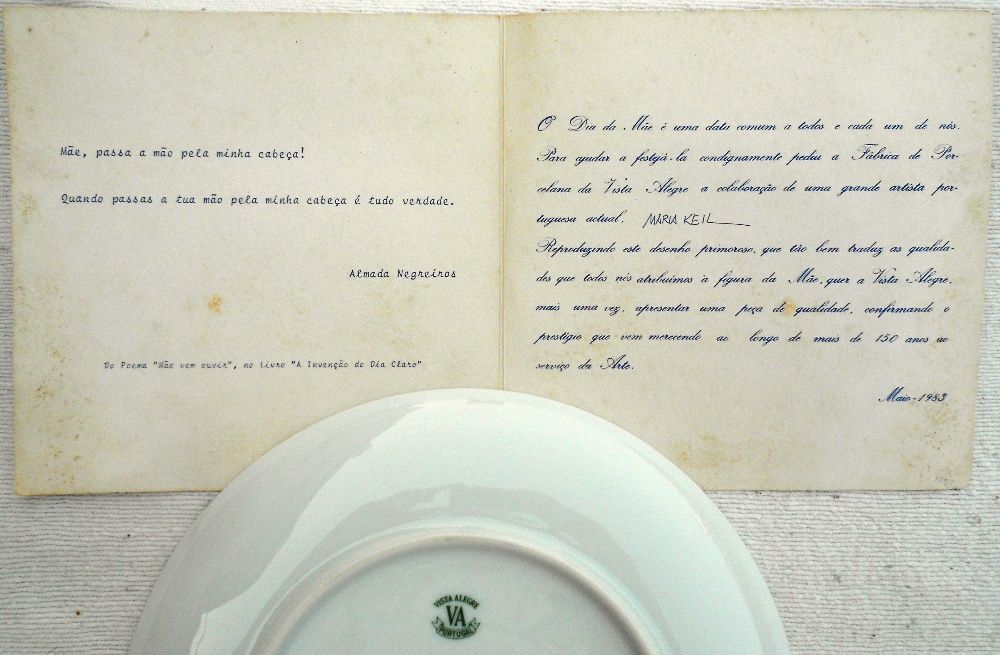 Mãe, passa a mão pela minha cabeça!
Quando passas a tua mão pela minha cabeça é tudo verdade.
Almada Negreiros
Do Poema "Mãe vem ouvir", no livro "A Invenção do Dia Claro"
O Dia da Mãe é uma data comum a todos e cada um de nós.
Para ajudar a festejá-la condignamente pediu a Fábrica de Por-
celana da Vista Alegre a colaboração de uma grande artista por-
tuguesa actual. MARIA KEIL
Reproduzindo este desenho primoroso, que tão bem traduz as qualida-
des que todos nós atribuimos à figura da Mãe, quer a Vista Alegre,
mais uma vez, apresentar uma peça de qualidade, confirmando o
prestígio que vem merecendo ao longo de mais de 150 anos ao
serviço da Arte.
Maio-1983
VISTA ALEGRE
VA
PORTUGAL